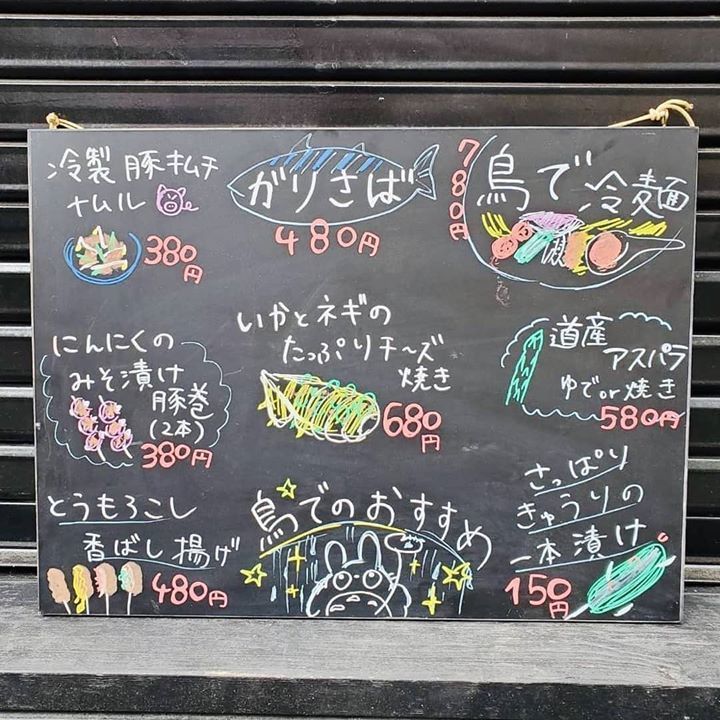 冷製 豚キムチ
ナムル
380円
がりさば
480円
鳥で冷麺
780円
にんにくの
みそ漬け
豚巻
(2本)
380円
いかとネギの
たっぷりチーズ
焼き
680円
道産
アスパラ
ゆでor焼き
580円
とうもろこし
香ばし揚げ
480円
鳥でのおすすめ
さっぱり
きゅうりの
一本漬け
150円